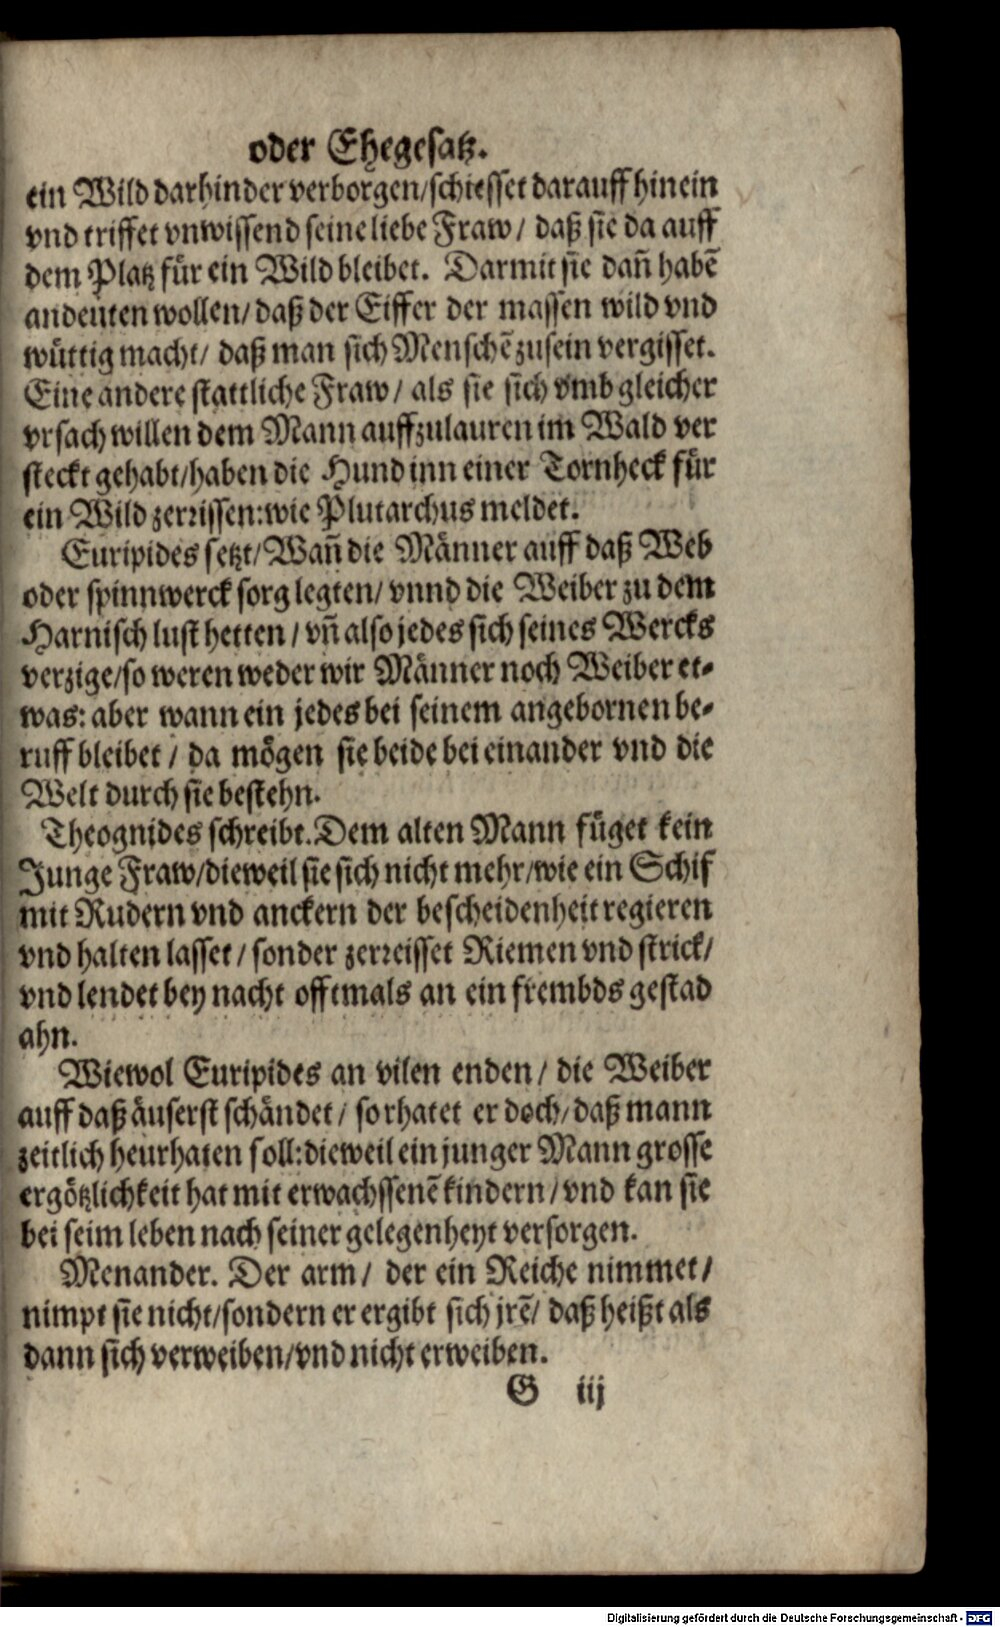 oder Ehegesatz.
ein Wild darhinder verborgen/schiesset darauff hinein
vnd triffet vnwissend seine liebe Fraw/ daß sie da auff
dem Platz für ein Wild bleibet. Darmit sie dañ habē
andeuten wollen/ daß der Eiffer der massen wild vnd
wüttig macht/ daß man sich Menschē zu sein vergisset.
Eine andere stattliche Fraw/ als sie sich vmb gleicher
vrsach willen dem Mann auffzulauren im Wald ver
steckt gehabt/haben die Hund inn einer Tornheck für
ein Wild zerrissen: wie Plutarchus meldet.
Euripides setzt/ Wañ die Männer auff daß Web
oder spinnwerck sorg legten/ vnnd die Weiber zu dem
Harnisch lust hetten/ vñ also jedes sich seines Wercks
verzige/so weren weder wir Männer noch Weiber et-
was: aber wann ein jedes bei seinem angebornen be-
ruff bleibet/ da mögen sie beide bei einander vnd die
Welt durch sie bestehn.
Theognides schreibt. Dem alten Mann füget kein
Junge Fraw/dieweil sie sich nicht mehr/wie ein Schif
mit Rudern vnd anckern der bescheidenheit regieren
vnd halten lasset/ sonder zerreisset Riemen vnd strick/
vnd lendet bey nacht offtmals an ein frembds gestad
ahn.
Wiewol Euripides an vilen enden/ die Weiber
auff daß äuserst schändet/ so rhatet er doch/ daß mann
zeitlich heurhaten soll: dieweil ein junger Mann grosse
ergötzlichkeit hat mit erwachssenē kindern/ vnd kan sie
bei seim leben nach seiner gelegenheyt versorgen.
Menander. Der arm/ der ein Reiche nimmet/
nimpt sie nicht/sondern er ergibt sich jrē/ daß heißt als
dann sich verweiben/vnd nicht erweiben.
G iij
Digitalisierung gefördert durch die Deutsche Forschungsgemeinschaft - DFG